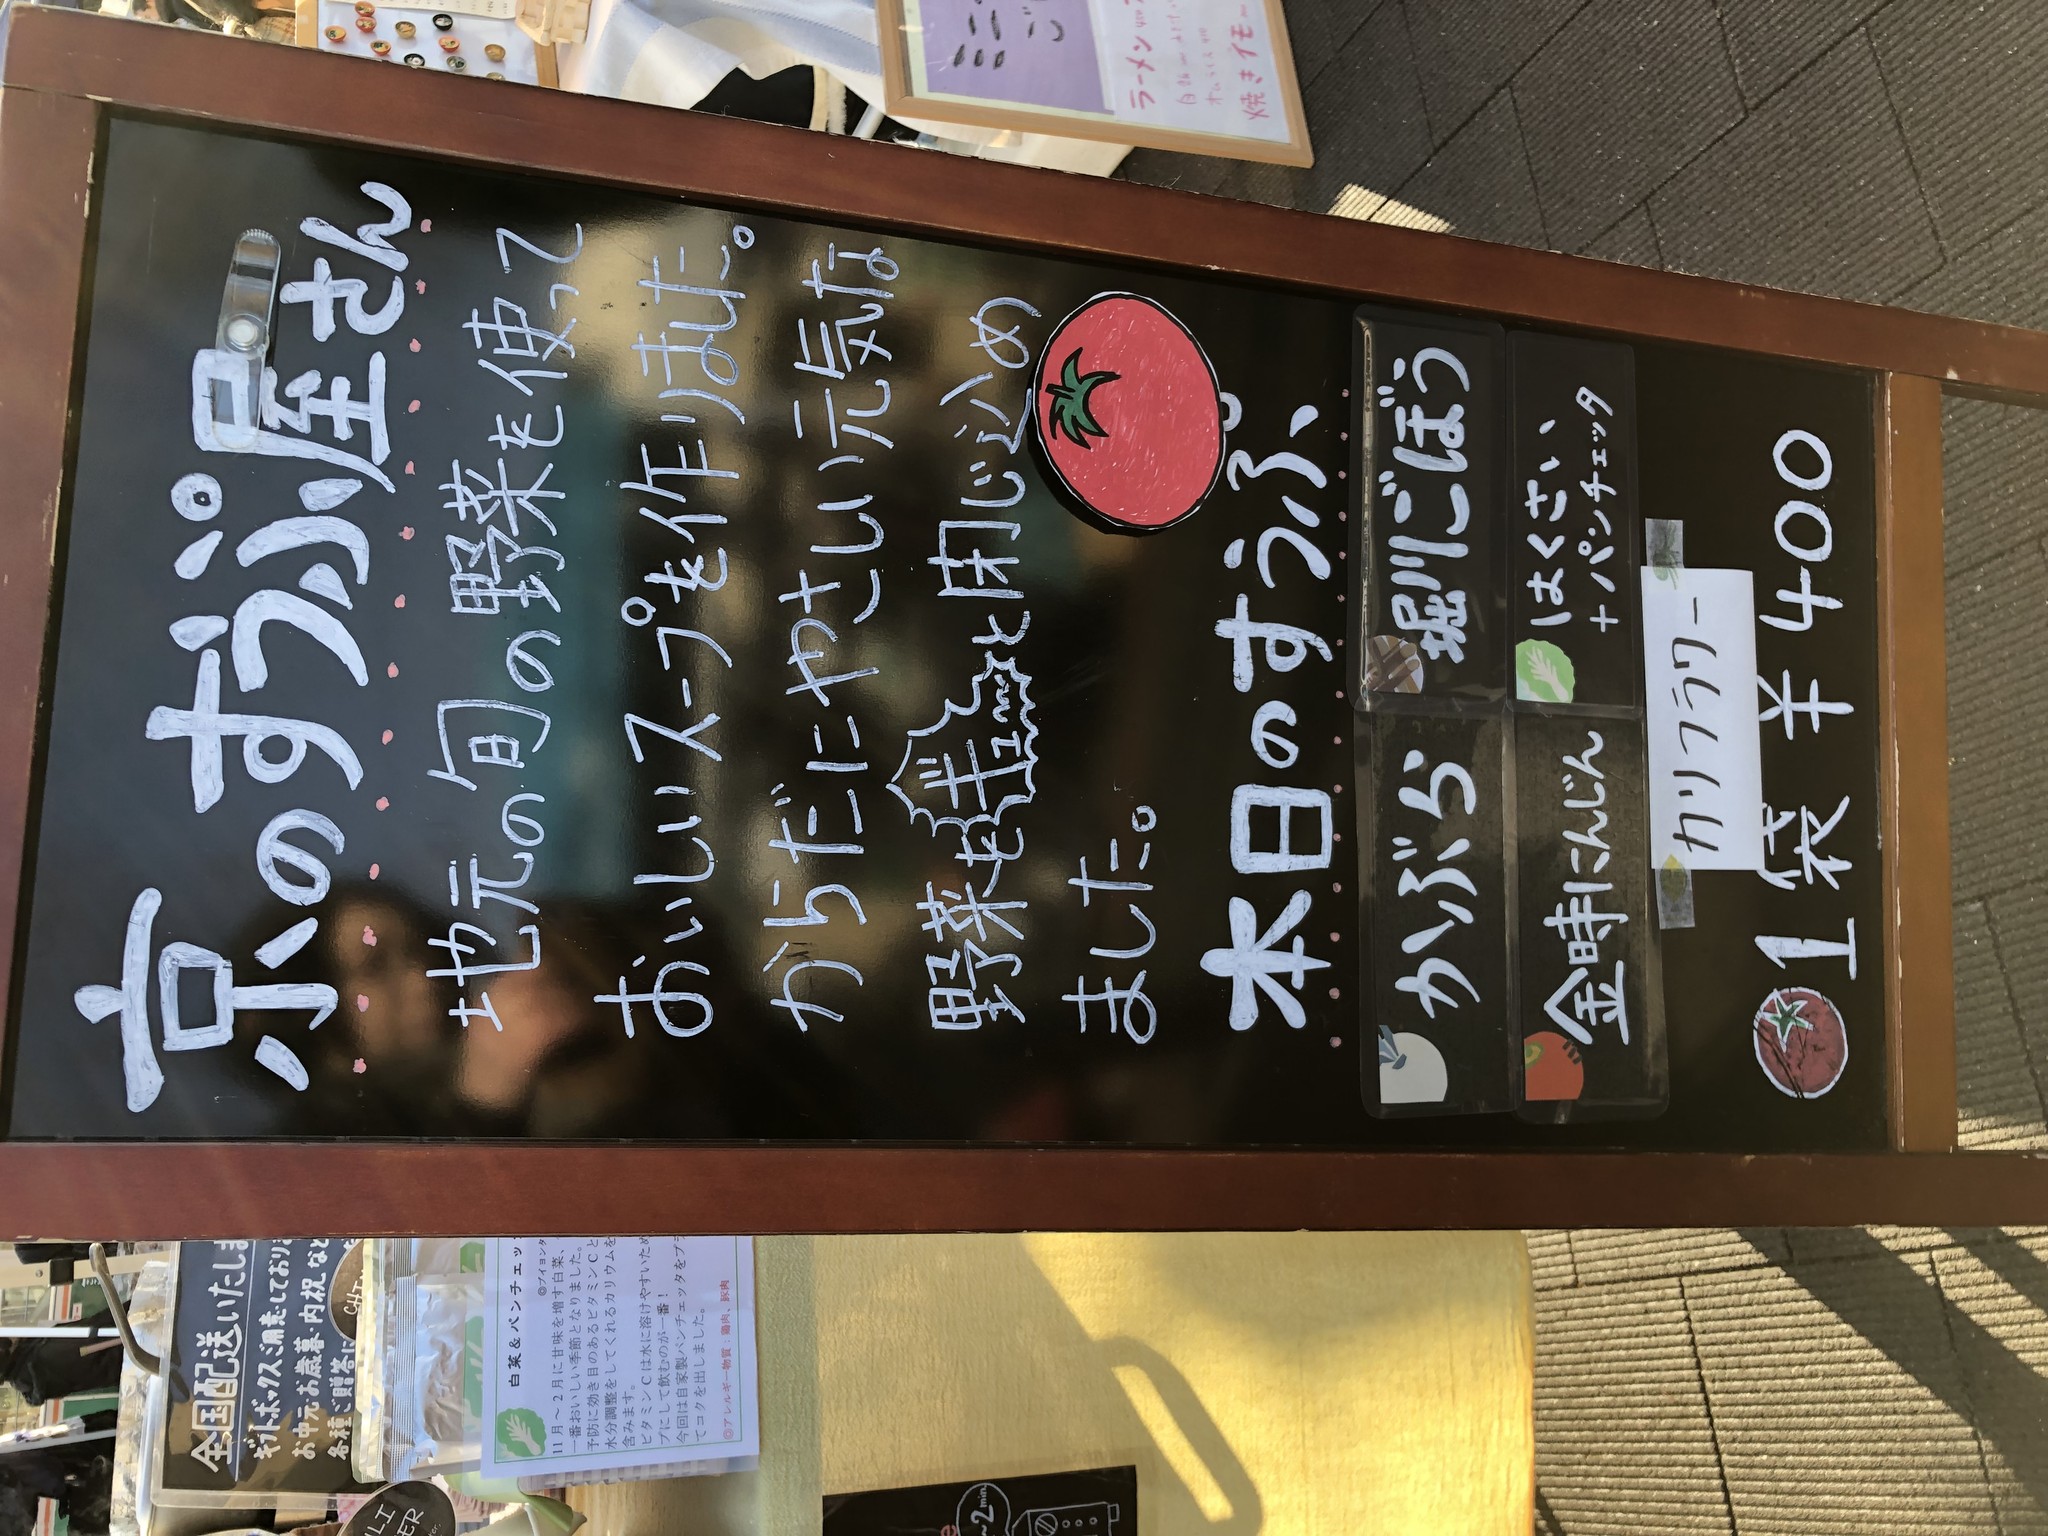 京のすうぷ屋さん
地元の旬の野菜を使って
おいしいスープを作りました。
からだにやさしい元気な
野菜をギュ〜ッと閉じ込め
ました。
本日のすうぷ
かぶら
堀川ごぼう
金時にんじん
はくさい
+パンチェッタ
カリフラワー
1袋 ¥400
ラーメン
焼きイモ
全国配送いたしま
ギフトボックスご用意しており
お中元・お歳暮・内祝など
各種ご贈答に
白菜&パンチェッ
11月〜2月に甘味を増す白菜、
一番おいしい季節となりました。
予防に効き目のあるビタミンCと
水分調整をしてくれるカリウムを
含みます。
ビタミンCは水に溶けやすいため
プにして飲むのが一番!
今回は自家製パンチェッタをプラ
てコクを出しました。
◎アレルギー物質:鶏肉、豚肉